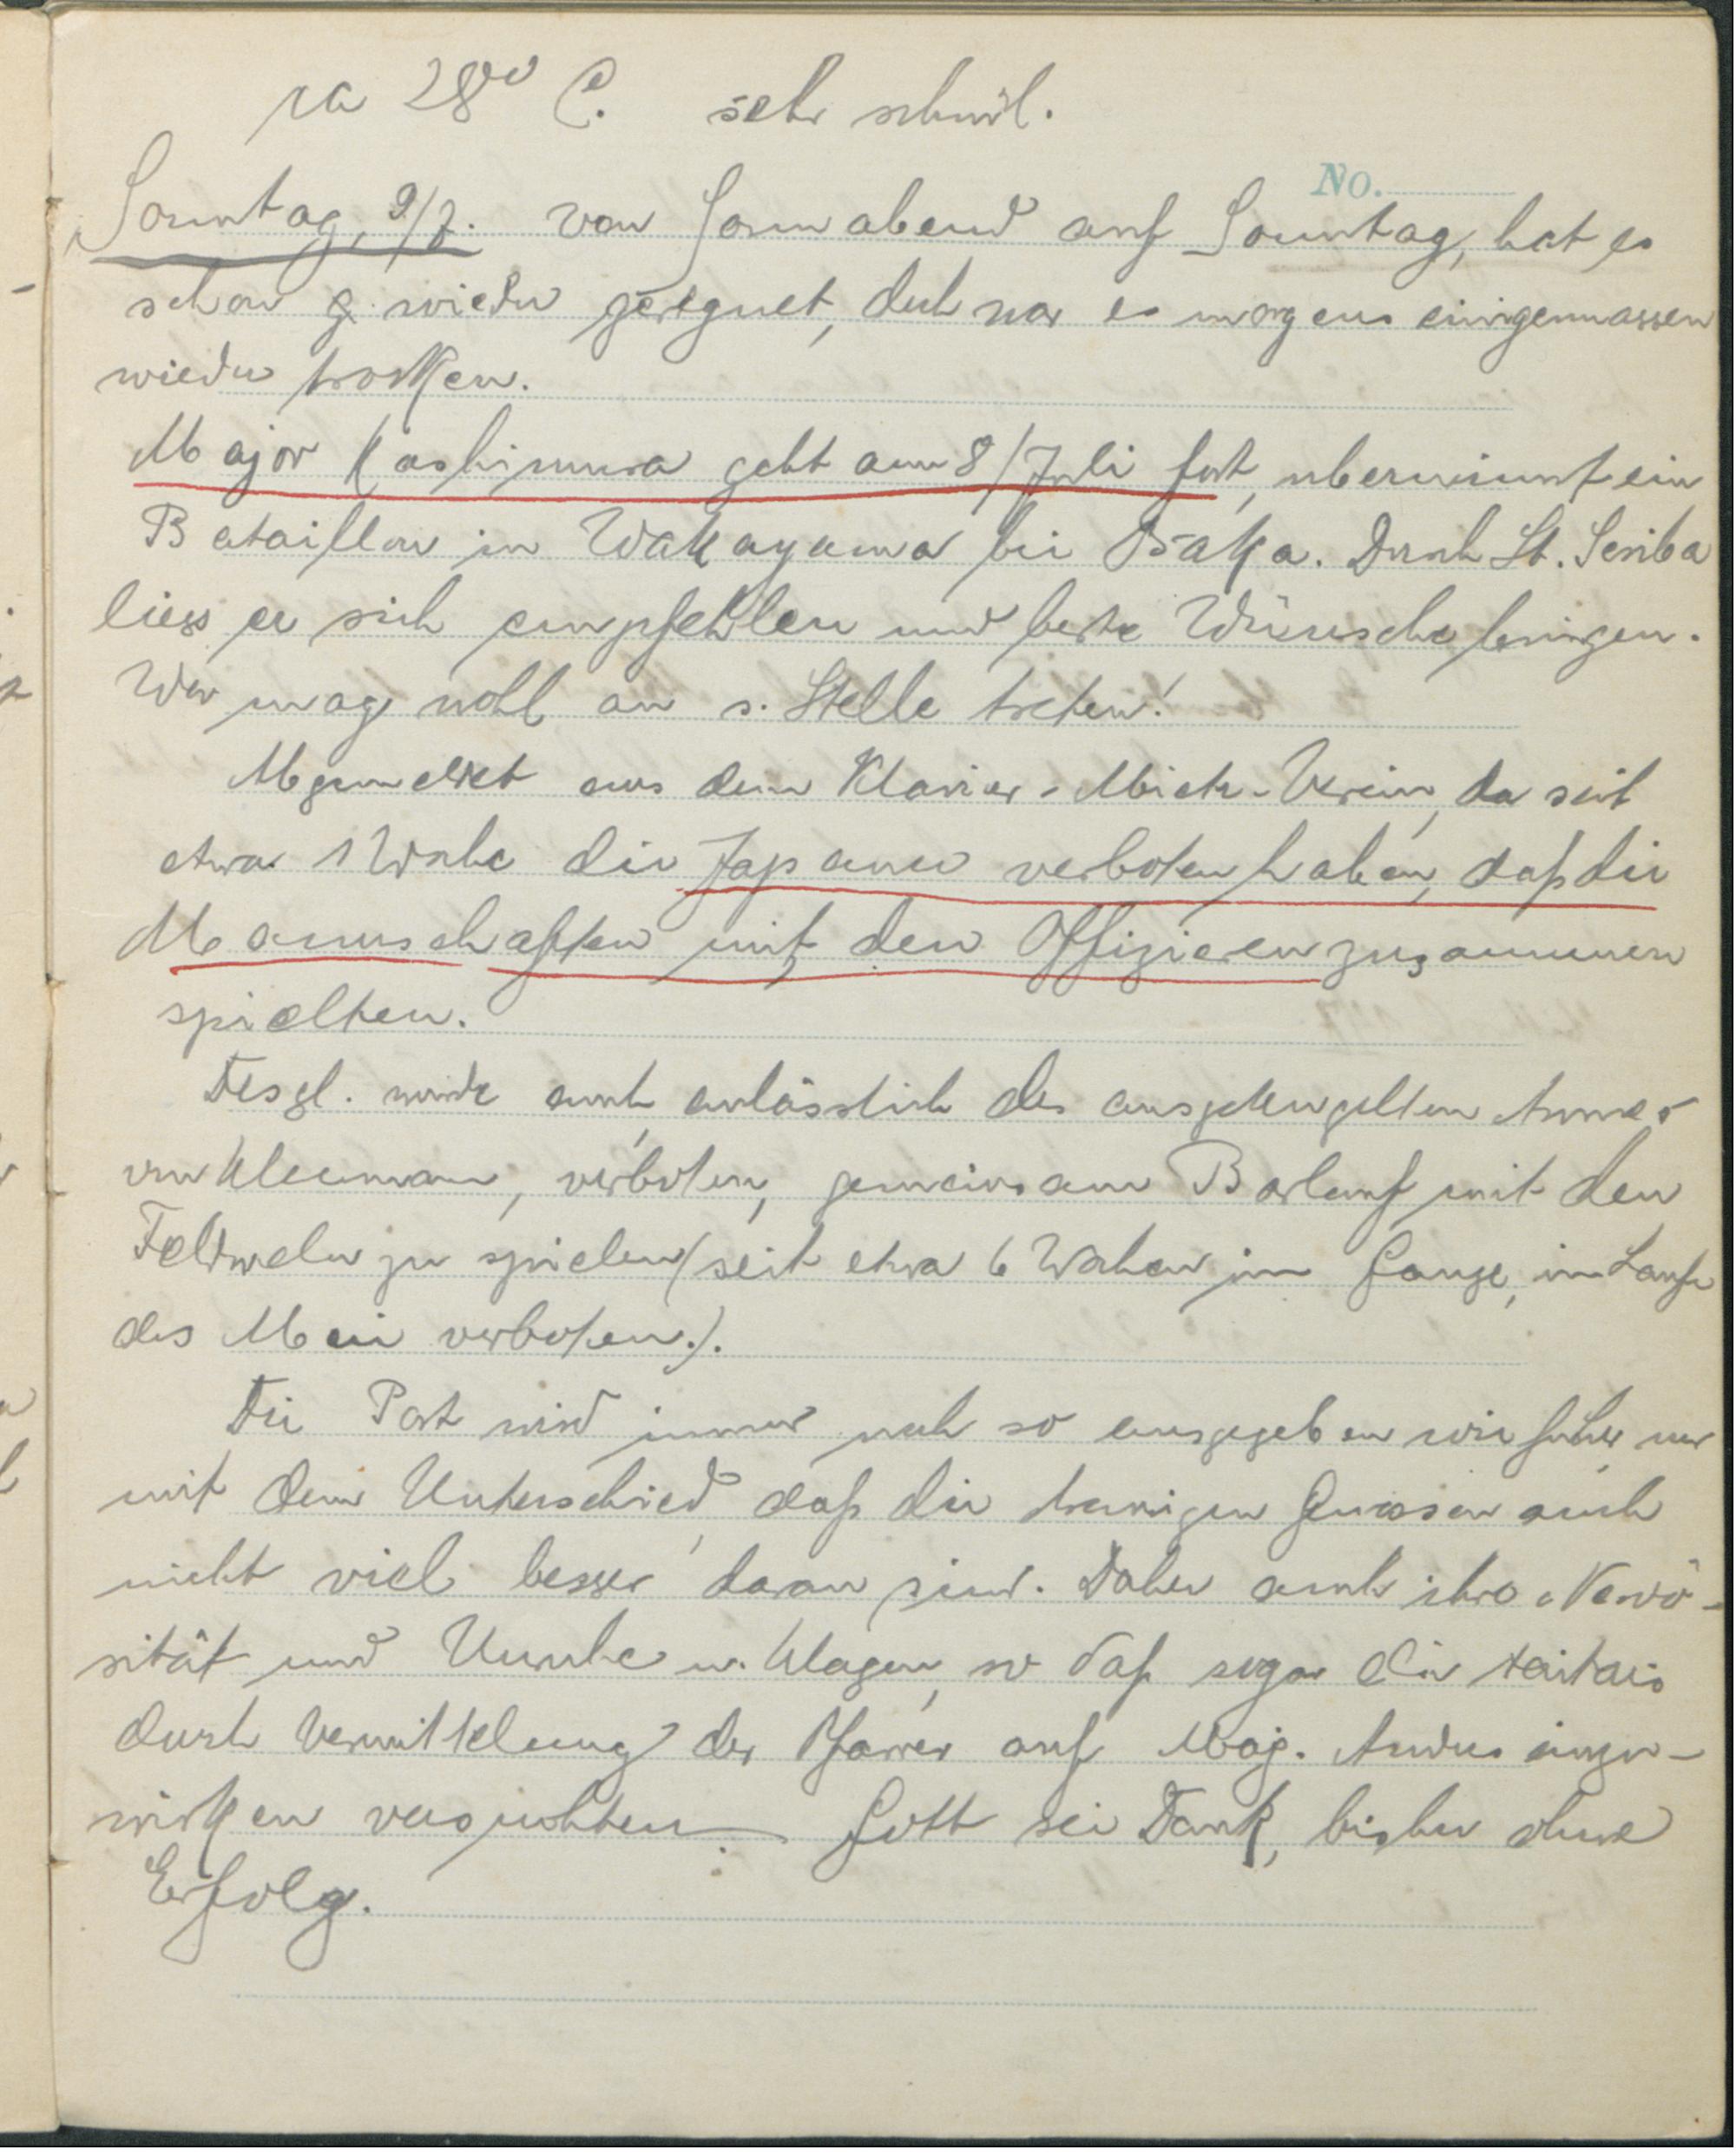 ca 28° C. sehr schwül.
No.
Sonntag, 9/7. von Sonnabend auf Sonntag, hat es
schon g. wieder geregnet, doch war es morgens einigermassen
wieder trocken.
Major Kashimura geht am 8/Juli fort, übernimmt ein
Bataillon in Wakayama bei Osaka. Durch Lt. Seriba
liess er sich empfehlen und beste Wünsche bringen.
Wer mag wohl an s. Stelle treten!
Abgemeldet aus dem Klavier-Miets-Verein, da seit
etwa 1 Woche die Japaner verboten haben, daß die
Mannschaften mit den Offizieren zusammen
spielten.
Desgl. wurde auch anlässlich des
von Kleemann, verboten, gemeinsam Barlauf mit den
Feldwebeln zu spielen (seit etwa 6 Wochen im Gange, im Laufe
des Mai verboten.).
Die Post wird immer noch so ausgegeben wie früher nur
mit dem Unterschied, daß die traurigen Genossen auch
nicht viel besser daran sind. Daher auch ihre Nervö-
sität und Unruhe u. Klagen, so daß sogar die taitais
durch Vermittelung der Pfarrer auf Maj. Anders einzu-
wirken versuchten. Gott sei Dank, bisher ohne
Erfolg.